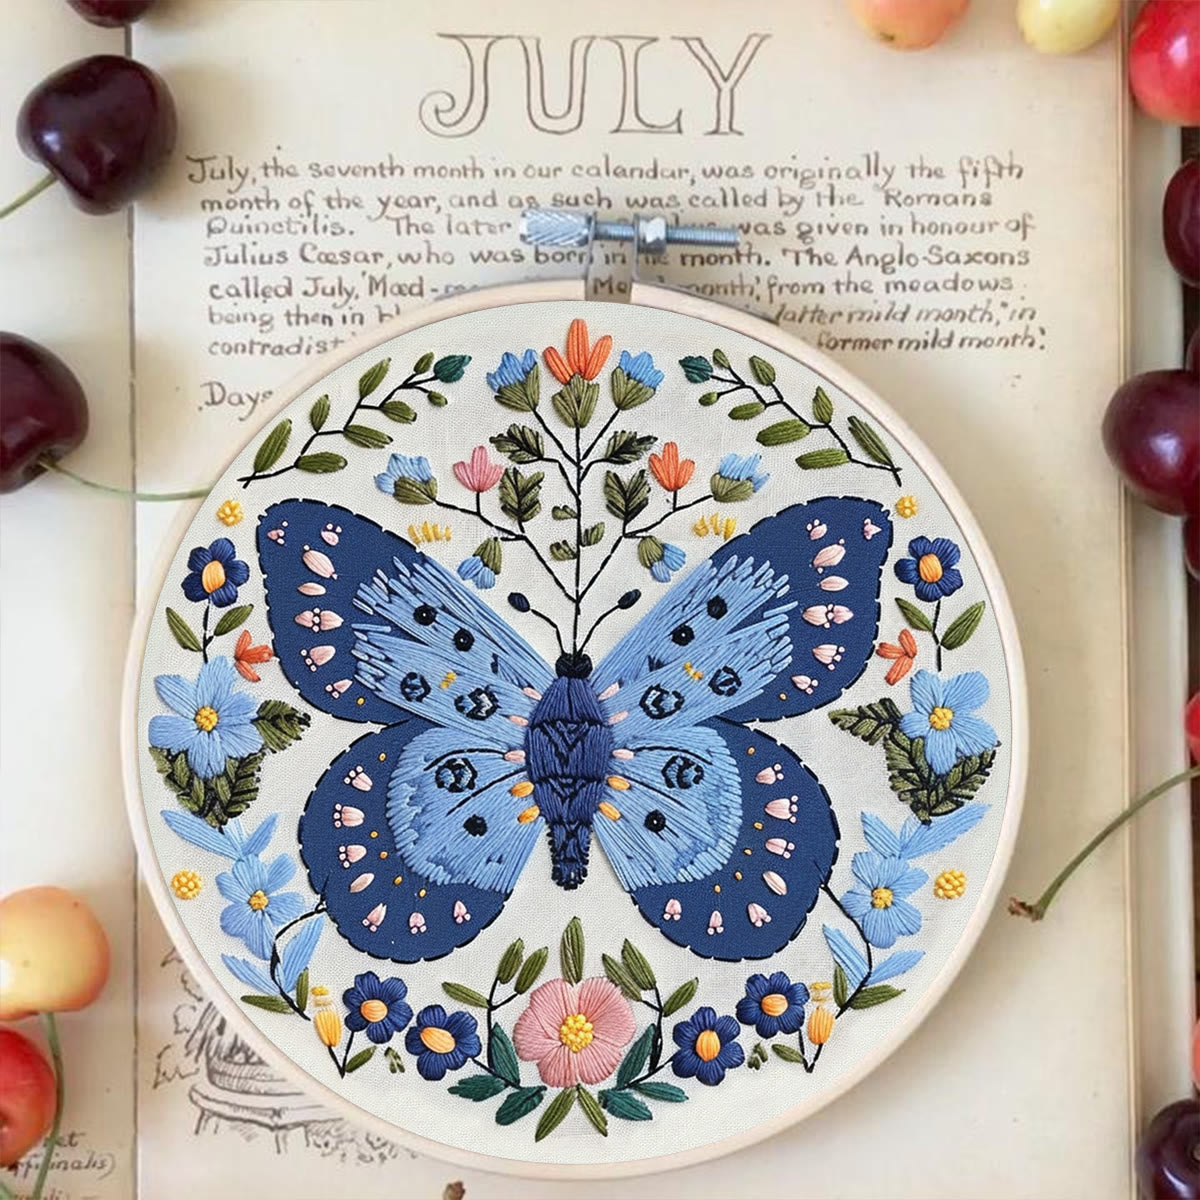 JULY
July, the seventh month in our calendar, was originally the fifth
month of the year, and as such was called by the Romans
Quinctilis. The later was given in honour of
Julius Cæsar, who was born in month. The Anglo-Saxons
called July, 'Mæd- month', from the meadows
being then in latter mild month," in
contradist former mild month'.
Days